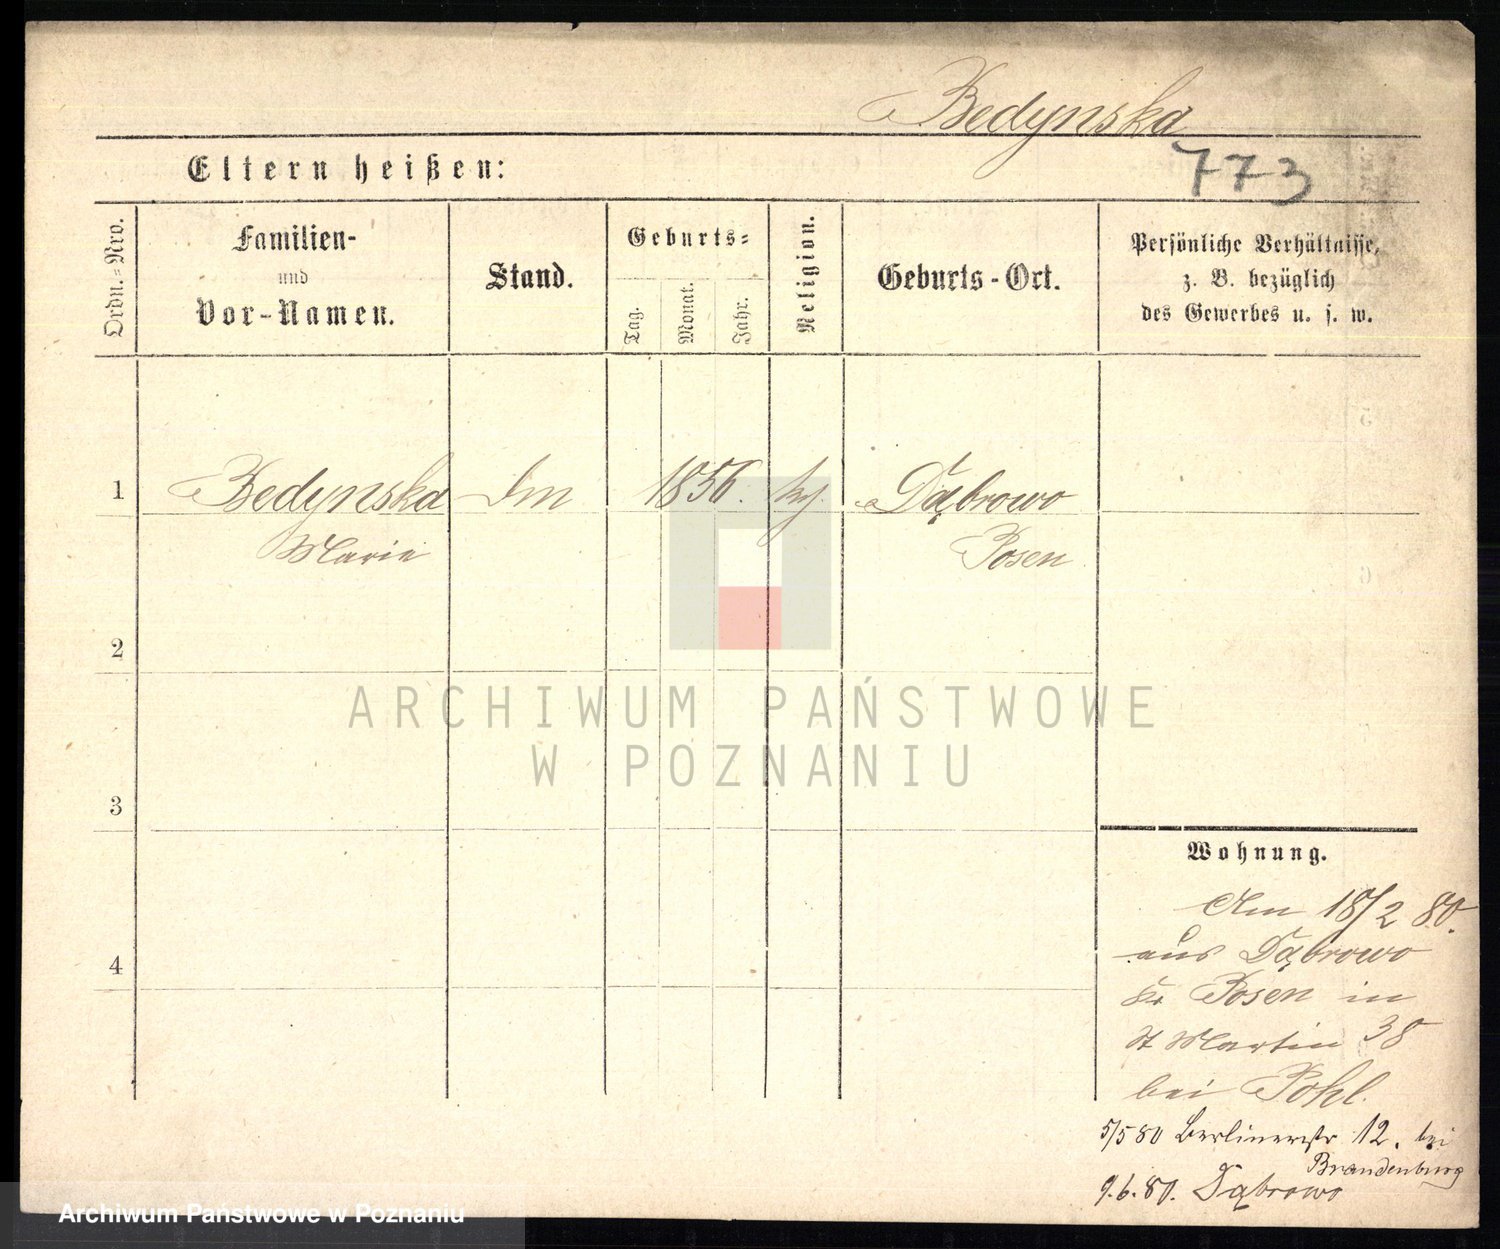 Bedynska
773
Eltern heißen:
Ordn.=Nro.
Familien-
und
Vor-Namen.
Stand.
Geburts=
Tag.
Monat.
Jahr.
Religion.
Geburts-Ort.
Persönliche Verhältnisse,
z. B. bezüglich
des Gewerbes u. s. w.
1 Bedynska 1856. Dąbrowo
Marie Posen
2
ARCHIWUM PAŃSTWOWE
W POZNANIU
3
Wohnung.
Am 18/2 80.
4
aus Dąbrowo
Kr Posen in
St Martin 38
bei Pohl.
5/5 80 Berlinerstr 12. bei
Brandenburg
9.6.80. Dąbrowo
Archiwum Państwowe w Poznaniu